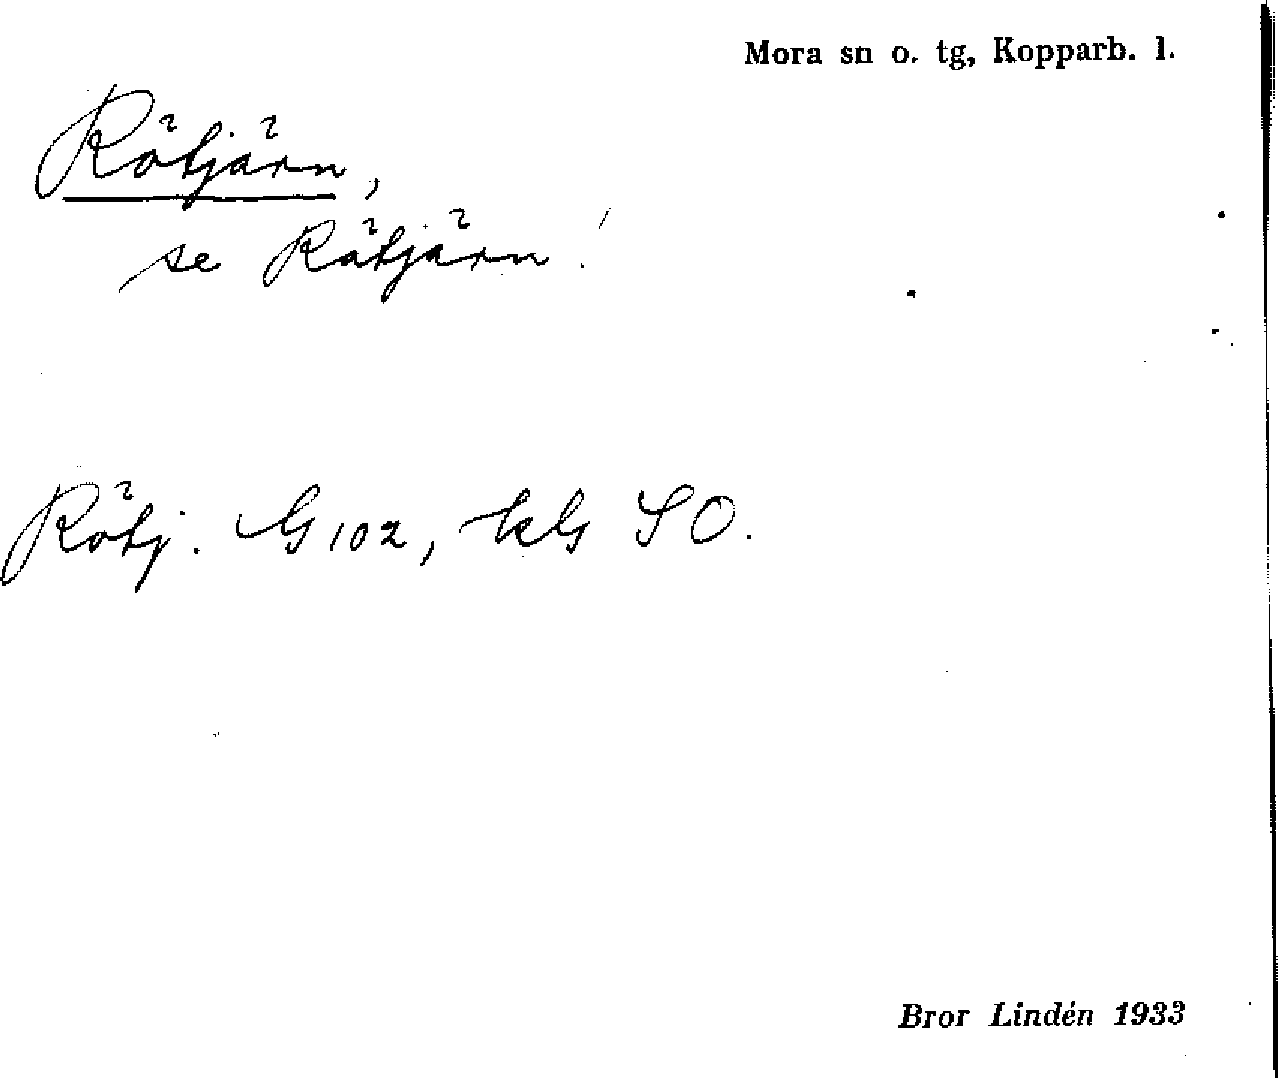 Mora sn o. tg, Kopparb. l.
Rötjärn,
se Rätjärn!
Rötj. G 102, kb SO.
Bror Lindén 1933